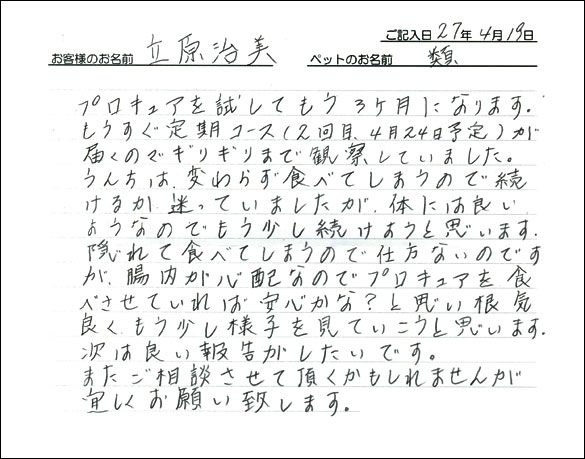 ご記入日 27年 4月 19日
お客様のお名前 立原治美 ペットのお名前 類
プロキュアを試してもう3ヶ月になります。
もうすぐ定期コース(2回目、4月24日予定)が
届くのでギリギリまで観察していました。
うんちは、変わらず食べてしまうので続
けるか迷っていましたが、体には良い
ようなのでもう少し続けようと思います。
隠れて食べてしまうので仕方ないのです
が、腸内が心配なのでプロキュアを食
べさせていれば安心かな?と思い根気
良く、もう少し様子を見ていこうと思います。
次は良い報告がしたいです。
またご相談させて頂くかもしれませんが
宜しくお願い致します。